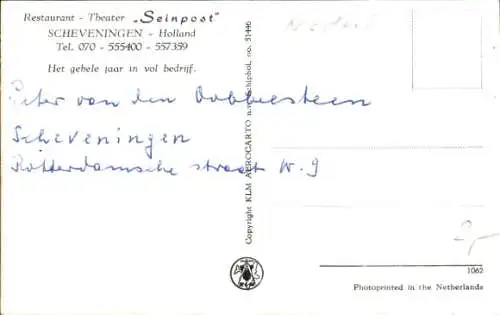 Restaurant - Theater „Seinpost”
SCHEVENINGEN - Holland
Tel. 070 - 555400 - 557359
Het gehele jaar in vol bedrijf.
Peter van den Dobbelsteen
Scheveningen
Rotterdamsche straat
Copyright KLM AEROCARTO n.v. Schiphol, no. 51446
2,-
1062
Photoprinted in the Netherlands